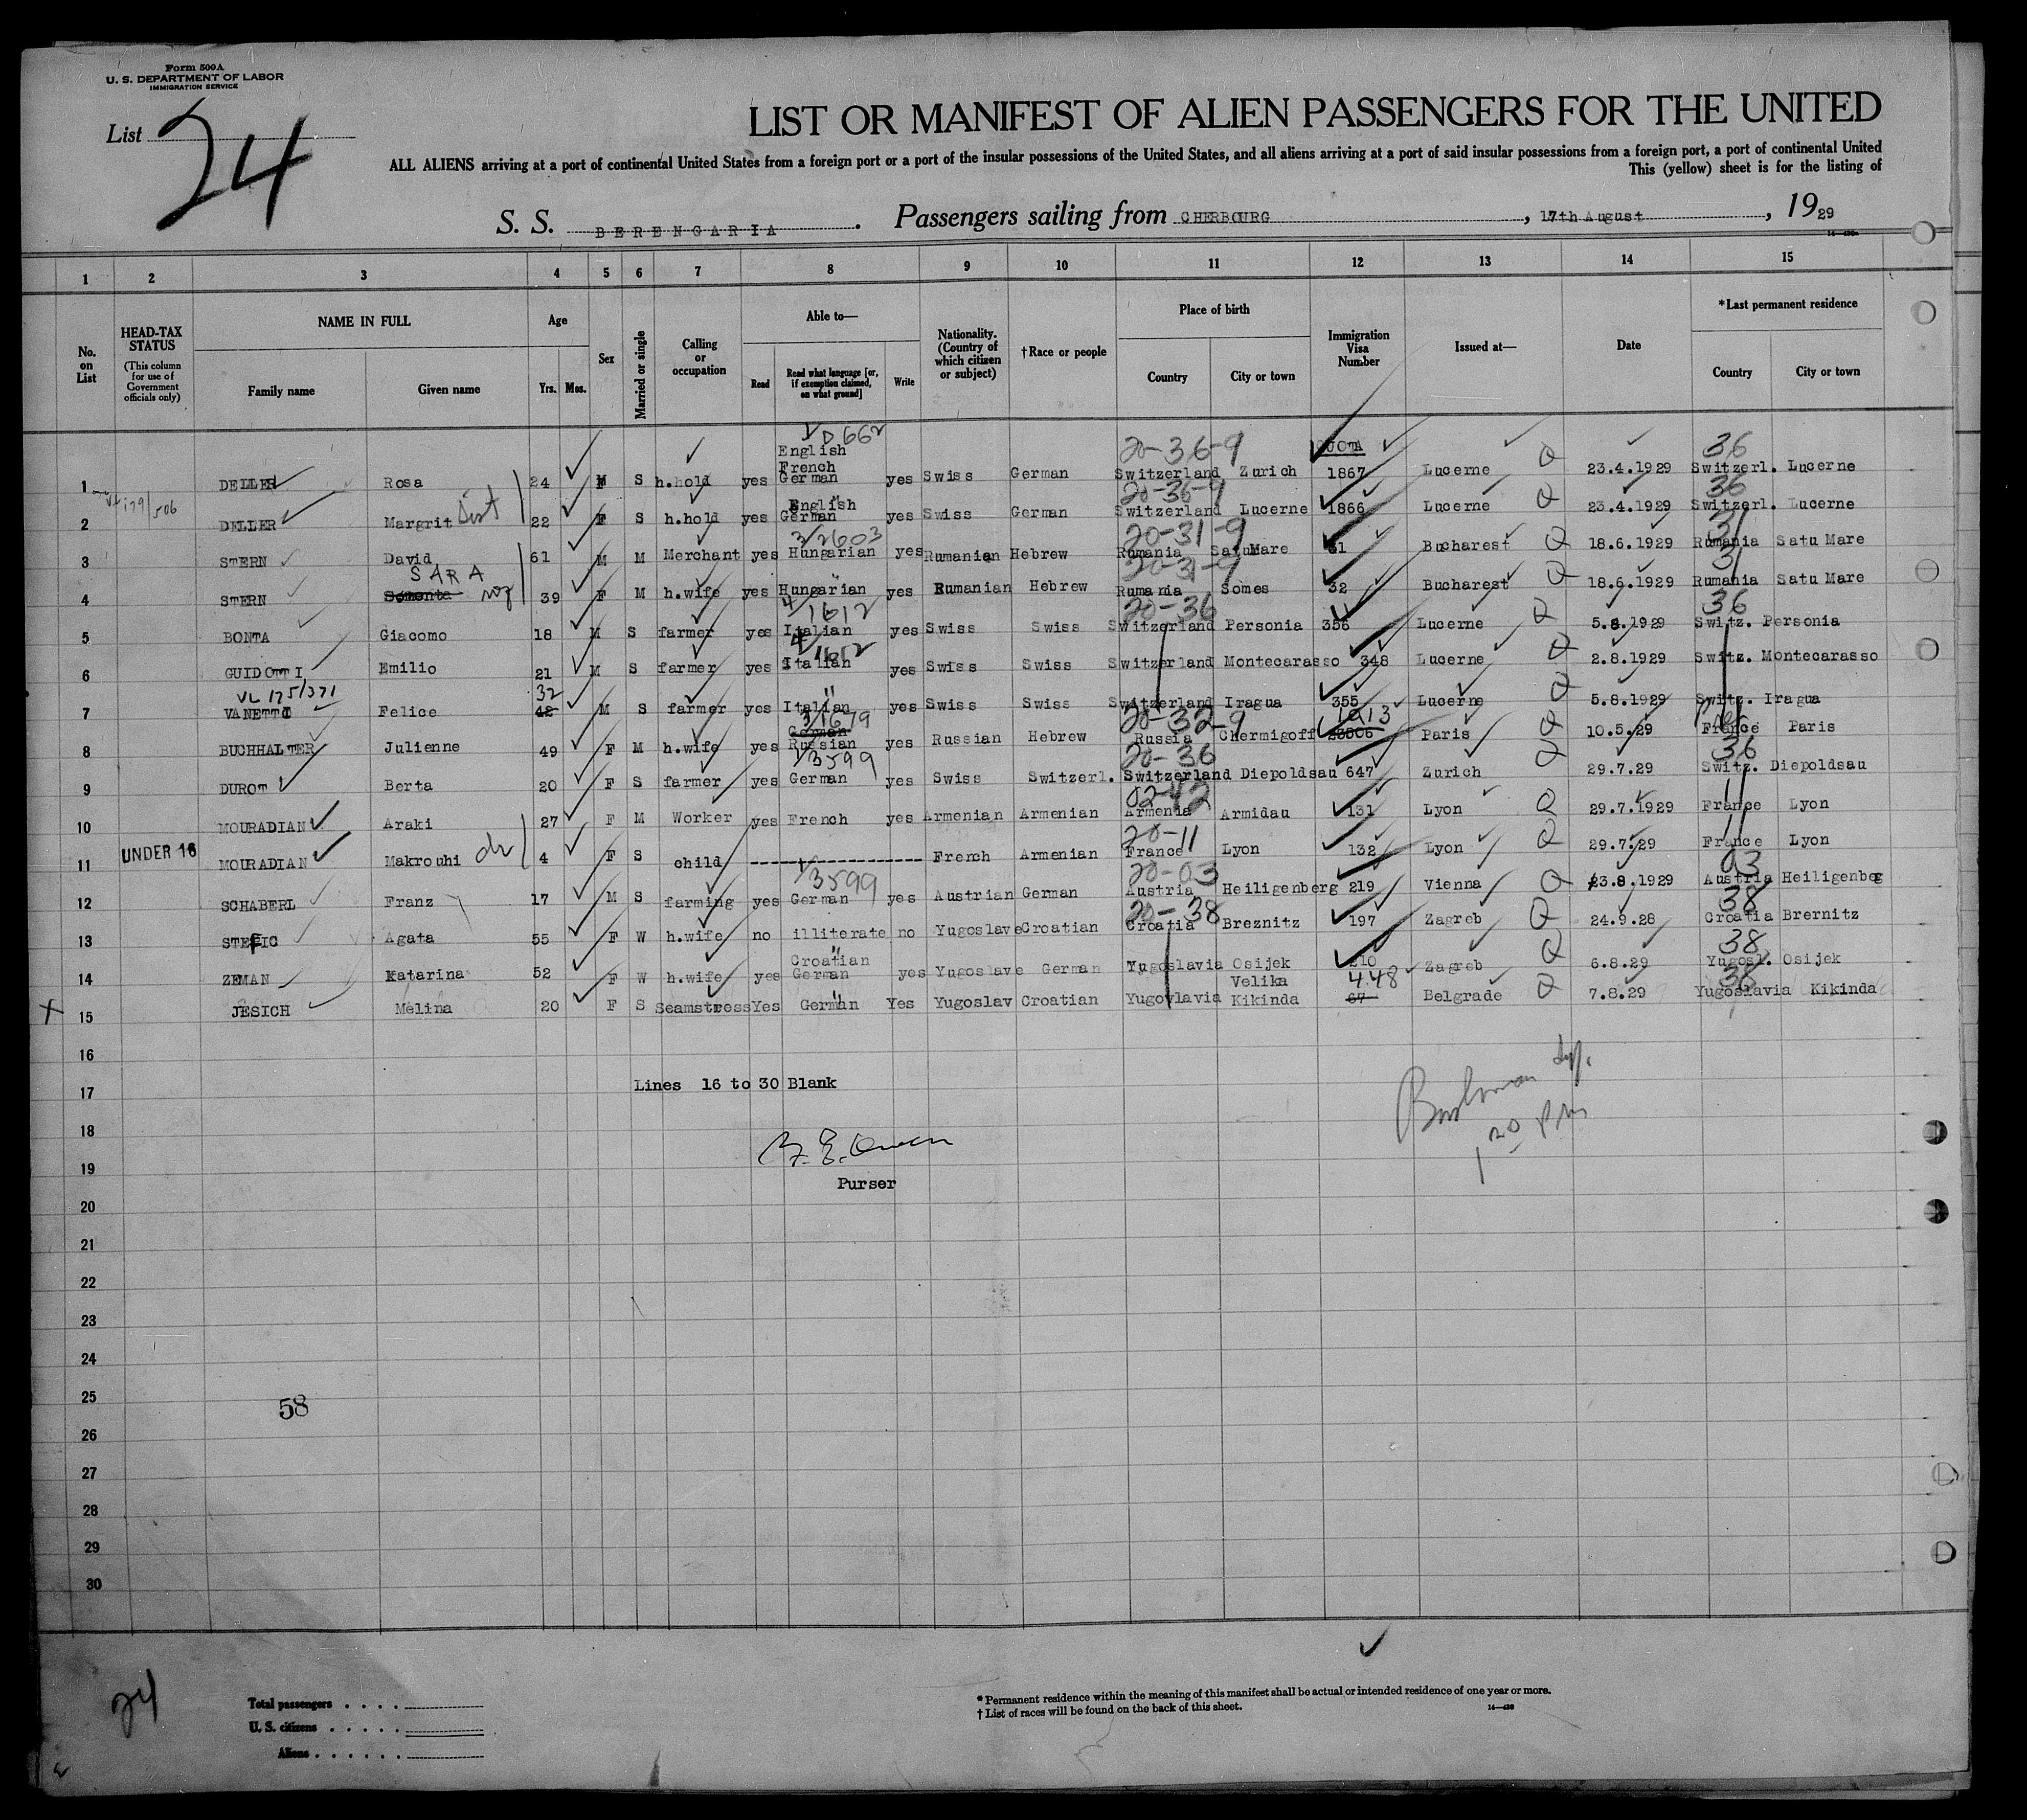 Form 500A
U. S. DEPARTMENT OF LABOR
IMMIGRATION SERVICE
List 24
LIST OR MANIFEST OF ALIEN PASSENGERS FOR THE UNITED
ALL ALIENS arriving at a port of continental United States from a foreign port or a port of the insular possessions of the United States, and all aliens arriving at a port of said insular possessions from a foreign port, a port of continental United
This (yellow) sheet is for the listing of
S. S. BERENGARIA. Passengers sailing from CHERBOURG, 17th August, 1929
1 2 3 4 5 6 7 8 9 10 11 12 13 14 15
No. on List
HEAD-TAX STATUS
(This column for use of Government officials only)
NAME IN FULL
Family name Given name
Age
Yrs. Mos.
Sex
Married or single
Calling or occupation
Able to—
Read Read what language [or, if exemption claimed, on what ground] Write
Nationality. (Country of which citizen or subject)
†Race or people
Place of birth
Country City or town
Immigration Visa Number
Issued at—
Date
*Last permanent residence
Country City or town
1 DELLER Rosa 24 F S h.hold yes English French German yes Swiss German 20-36-9 Switzerland Zurich QUOTA 1867 Lucerne Q 23.4.1929 36 Switzerl. Lucerne
2 DELLER Margrit 22 F S h.hold yes English German yes Swiss German 20-36-9 Switzerland Lucerne 1866 Lucerne Q 23.4.1929 36 Switzerl. Lucerne
3 STERN David 61 M M Merchant yes Hungarian yes Rumanian Hebrew 20-31-9 Rumania Satu Mare 31 Bucharest Q 18.6.1929 31 Rumania Satu Mare
4 STERN SARA 39 F M h.wife yes Hungarian yes Rumanian Hebrew 20-31-9 Rumania Somes 32 Bucharest Q 18.6.1929 31 Rumania Satu Mare
5 BONTA Giacomo 18 M S farmer yes Italian yes Swiss Swiss 20-36 Switzerland Personia 356 Lucerne Q 5.8.1929 36 Switz. Personia
6 GUIDOTTI Emilio 21 M S farmer yes Italian yes Swiss Swiss Switzerland Montecarasso 348 Lucerne Q 2.8.1929 Switz. Montecarasso
VL 175/371
7 VANETTI Felice 32 42 M S farmer yes Italian yes Swiss Swiss Switzerland Iragua 355 Lucerne Q 5.8.1929 Switz. Iragua
8 BUCHHALTER Julienne 49 F M h.wife yes German Russian yes Russian Hebrew 20-32-9 Russia Chermigoff 1913 Paris Q 10.5.29 France Paris
9 DUROT Berta 20 F S farmer yes 3599 German yes Swiss Switzerl. 20-36 Switzerland Diepoldsau 647 Zurich Q 29.7.29 36 Switz. Diepoldsau
10 MOURADIAN Araki 27 F M Worker yes French yes Armenian Armenian Armenia Armidau 131 Lyon Q 29.7.1929 11 France Lyon
11 UNDER 16 MOURADIAN Makrouhi 4 F S child French Armenian 20-11 France Lyon 132 Lyon Q 29.7.29 11 France Lyon
12 SCHABERL Franz 17 M S farming yes 3599 German yes Austrian German 20-03 Austria Heiligenberg 219 Vienna Q 23.8.1929 03 Austria Heiligenbeg
13 STEFIC Agata 55 F W h.wife no illiterate no Yugoslave Croatian 20-38 Croatia Breznitz 197 Zagreb Q 24.9.28 38 Croatia Brernitz
14 ZEMAN Katarina 52 F W h.wife yes Croatian German yes Yugoslave German Yugoslavia Osijek 210 Zagreb Q 6.8.29 38 Yugosl. Osijek
15 JESICH Melina 20 F S Seamstress Yes German Yes Yugoslav Croatian Yugovlavia Velika Kikinda 448 67 Belgrade Q 7.8.29 38 Yugoslavia Kikinda
16
17 Lines 16 to 30 Blank
18
19
Purser
20
21
22
23
24
25
58
26
27
28
29
30
24
Total passengers
U. S. citizens
Aliens
* Permanent residence within the meaning of this manifest shall be actual or intended residence of one year or more.
† List of races will be found on the back of this sheet.